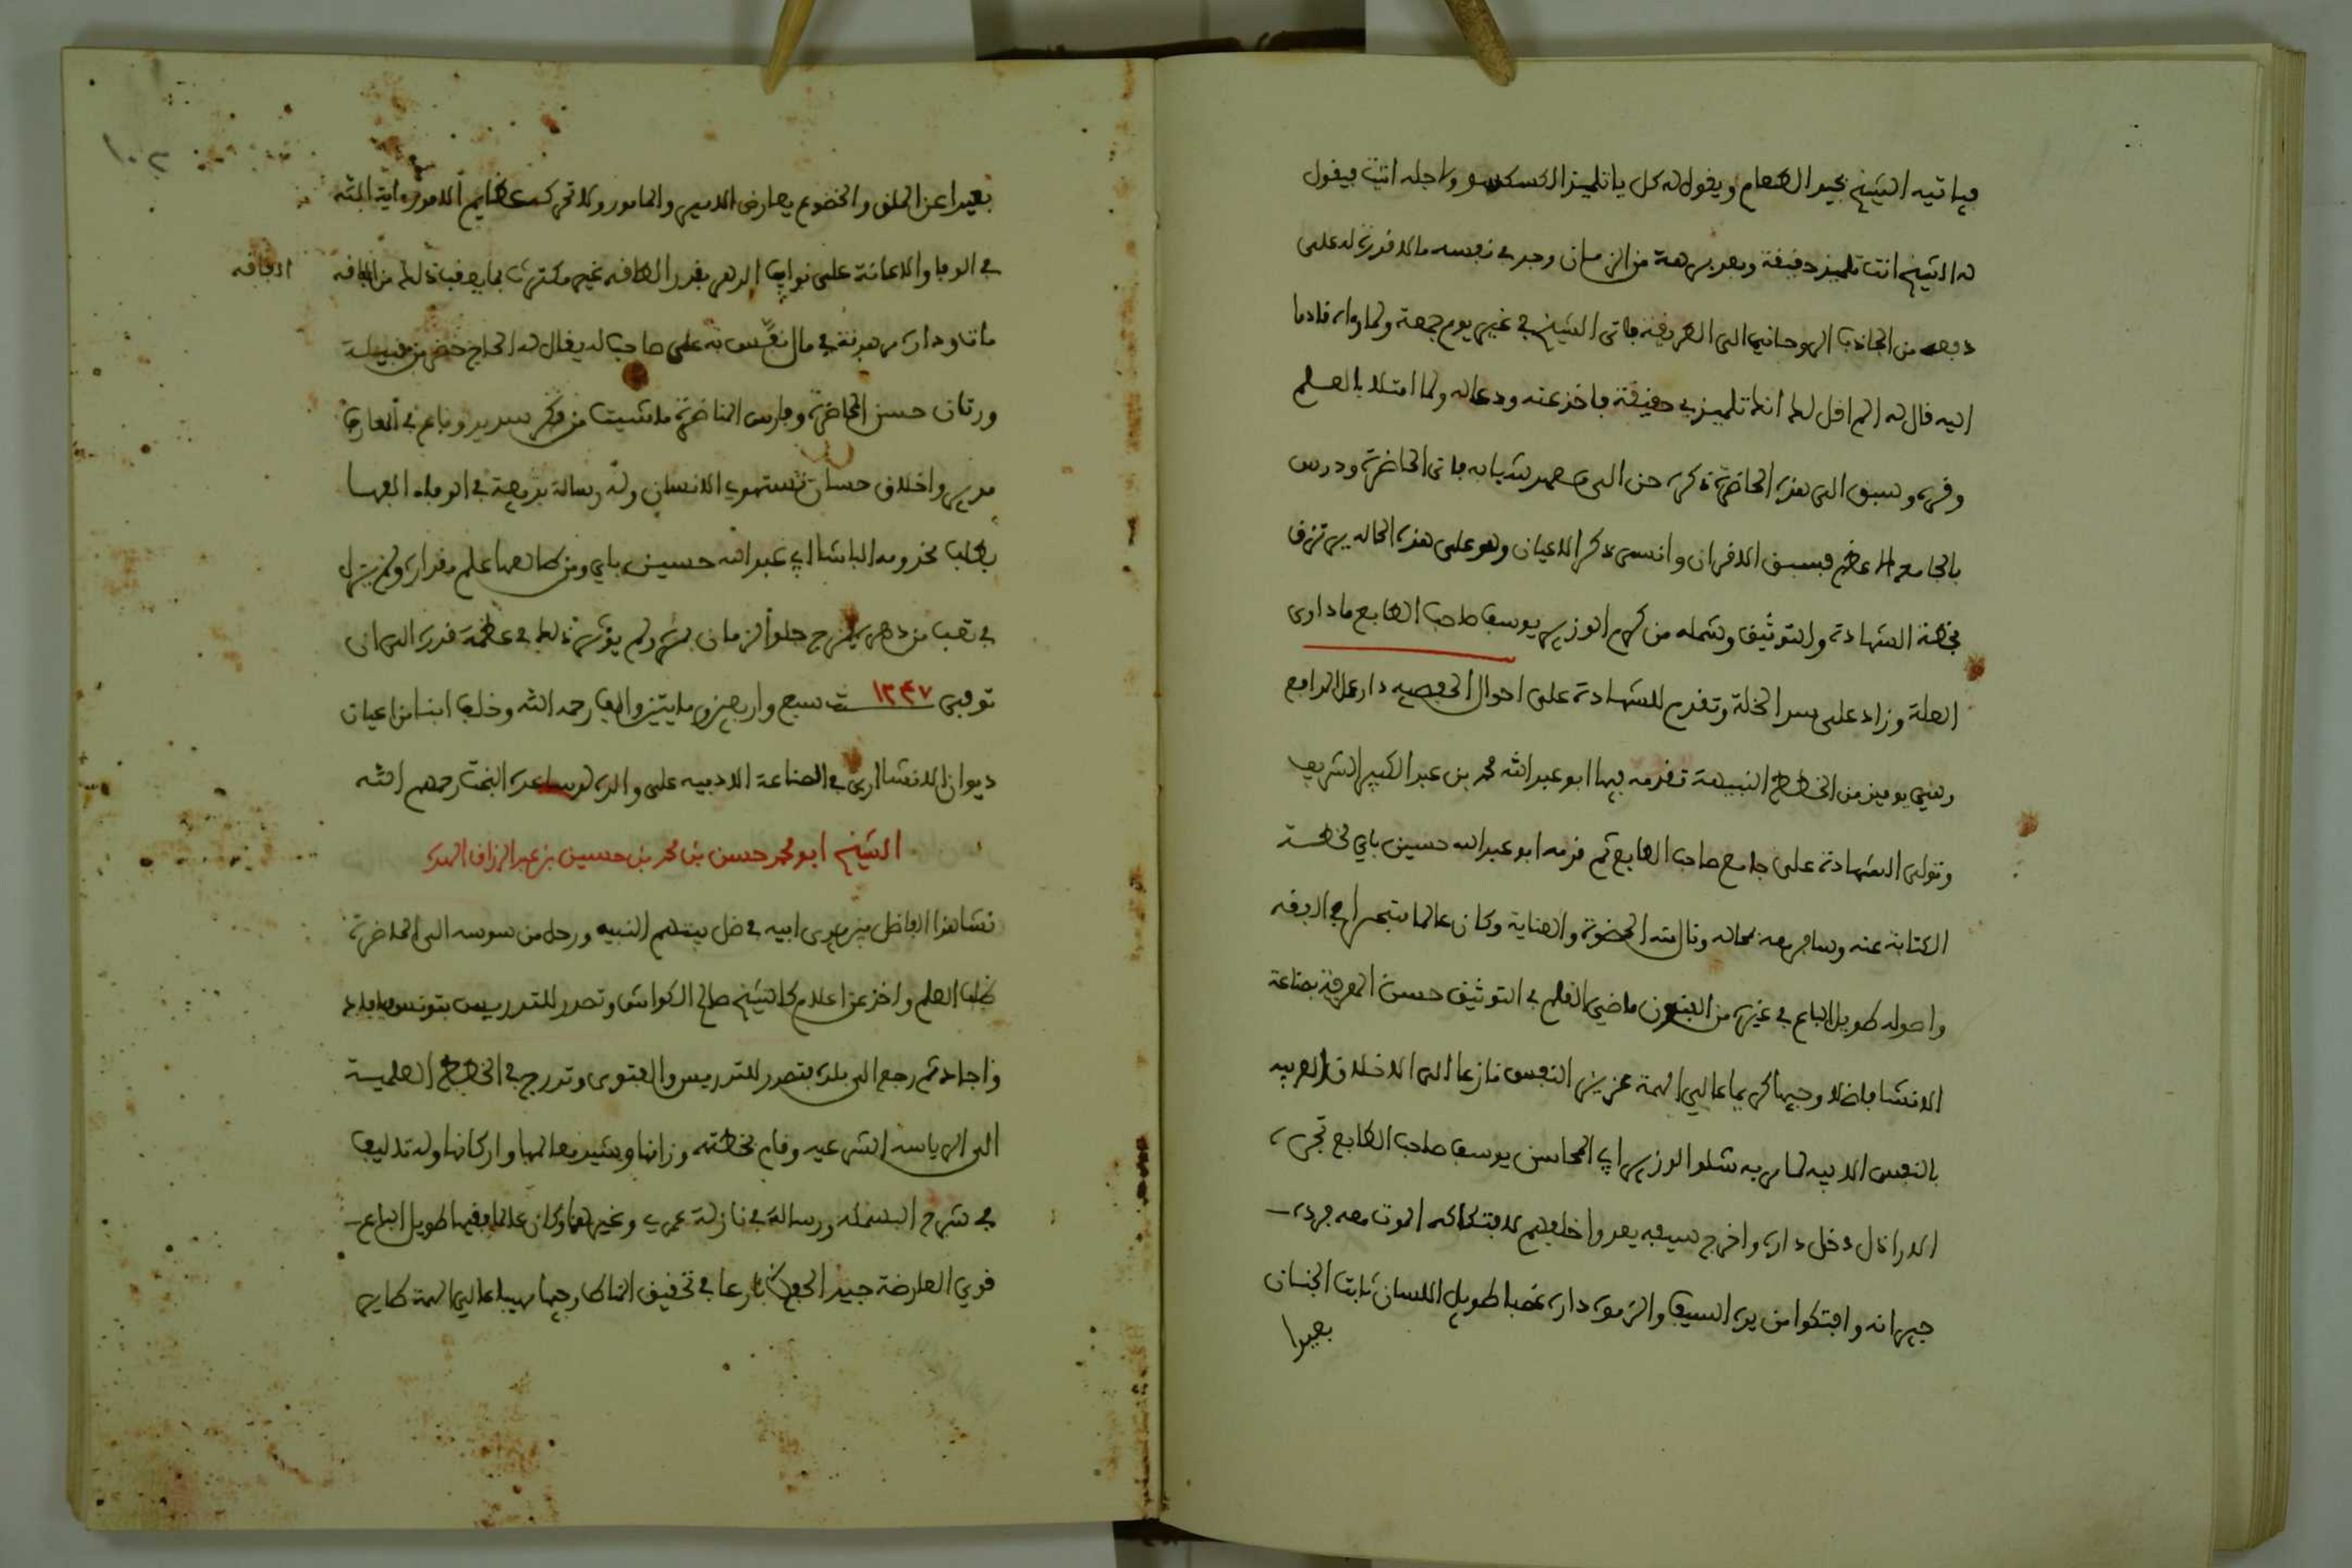 فياتيه الشيخ بجيد الطعام ويقول له كل يا تلميذ الكسكسو واجله اتيت فيقول
له الشيخ انت تلميذ حقيقة وبعد برهة من الزمان وجد في نفسه ما لا قدرة له على
دفعه من الجاذب الروحاني الى الطريقة فاتى الشيخ في غير يوم جمعة ولما رءاه قادما
اليه قال له الم اقل لك انك تلميذي حقيقة فاخذ عنه ودعا له ولما امتلا بالعلم
وفره وسبق الى هذه الحاضرة ذكره حن الى معهد شبابه فاتى الحاضرة ودرس
بالجامع الاعظم فسبق الاقران وانسى ذكر الاعيان وهو على هذه الحاله يرتزق
بخطة الشهادة والتوثيق وشمله من كرم الوزير يوسف صاحب الطابع ما داوى
العلة وزاد على سد الخلة وتقدم للشهادة على احوال الحفصيه دار عمل المدافع
وهي يوميذ من الخطط النبيهة تقدمه فيها ابو عبد الله محمد بن عبد الكبير الشريف
وتولى الشهادة على جامع صاحب الطابع ثم قدمه ابو عبد الله حسين باي لخطة
الكتابة عنه وسافر معه بمحاله ونالته الحضوة والعناية وكان عالما متبحرا في الفقه
واصوله طويل الباع في غيره من الفنون ماضي القلم في التوثيق حسن المعرفة بصناعة
الانشا فاضلا وجيها كريما عالي الهمة عزيز النفس نازعا الى الاخلاق العربيه
بالنفس الابيه لما ربه شلو الوزير ابي المحاسن يوسف صاحب الطابع تجره
الاراذل دخل داره واخرج سيفه يعدوا خلفهم لافتكاكه الموت معه فرده
جيرانه وافتكوا من يده السيف والزموه داره غصبا طويل اللسان ثابت الجنان
بعيدا
١٠٢
بعيدا عن الملق والخضوع يعارض الامير والمامور ولا تحركه عظايم الامور ءاية الله
في الوفا والاعانة على نوايب الدهر بقدر الطاقه غير مكترث بما يعقب ذلك من الفاقه
الافاقه
مات وداره مرهونة في مال نفّس به على صاحب له يقال له الحاج خضر من قبيلة
ورتان حسن المحاضرة وفارس المناضرة ما شيت من فكر سديد وباع في المعارف
مديد واخلاق حسان تستهوي الانسان وله رسالة بديعة في الوباء الفها
بطلب مخدومه الباشا ابي عبد الله حسين باي ومن طالعها علم مقداره ولم يزل
في تعب من دهر يمزج حلو الزمان بمره ولم يؤثر ذلك في عظمة قدره الى ان
توفي ١٢٤٧ سنة سبع واربعين ومايتين والف رحمه الله وخلف ابنا من اعيان
ديوان الانشا اربى في الصناعة الادبيه على والده لو ساعده البخت رحمهم الله
الشيخ ابو محمد حسن بن محمد بن حسين بن عبد الرزاق الهده
نشا هذا الفاضل بين يدي ابيه في ظل بيتهم النبيه ورحل من سوسه الى الحاضرة
طلب العلم واخذ عن اعلام كالشيخ صالح الكواش وتصدر للتدريس بتونس فافاد
واجاد ثم رجع الى بلده فتصدر للتدريس والفتوى وتدرج في الخطط العلمية
الى الرياسه الشرعيه وقام بخطته وزانها وشيد معالمها واركانها وله تاليف
في شرح البسمله ورسالة في نازلة عمري وغيرهما وكان عالما فقيها طويل الباع
قوي العارضة جيد الحفظ بارعا في تحقيق المناط وجيها مهيبا عالي الهمة طاير